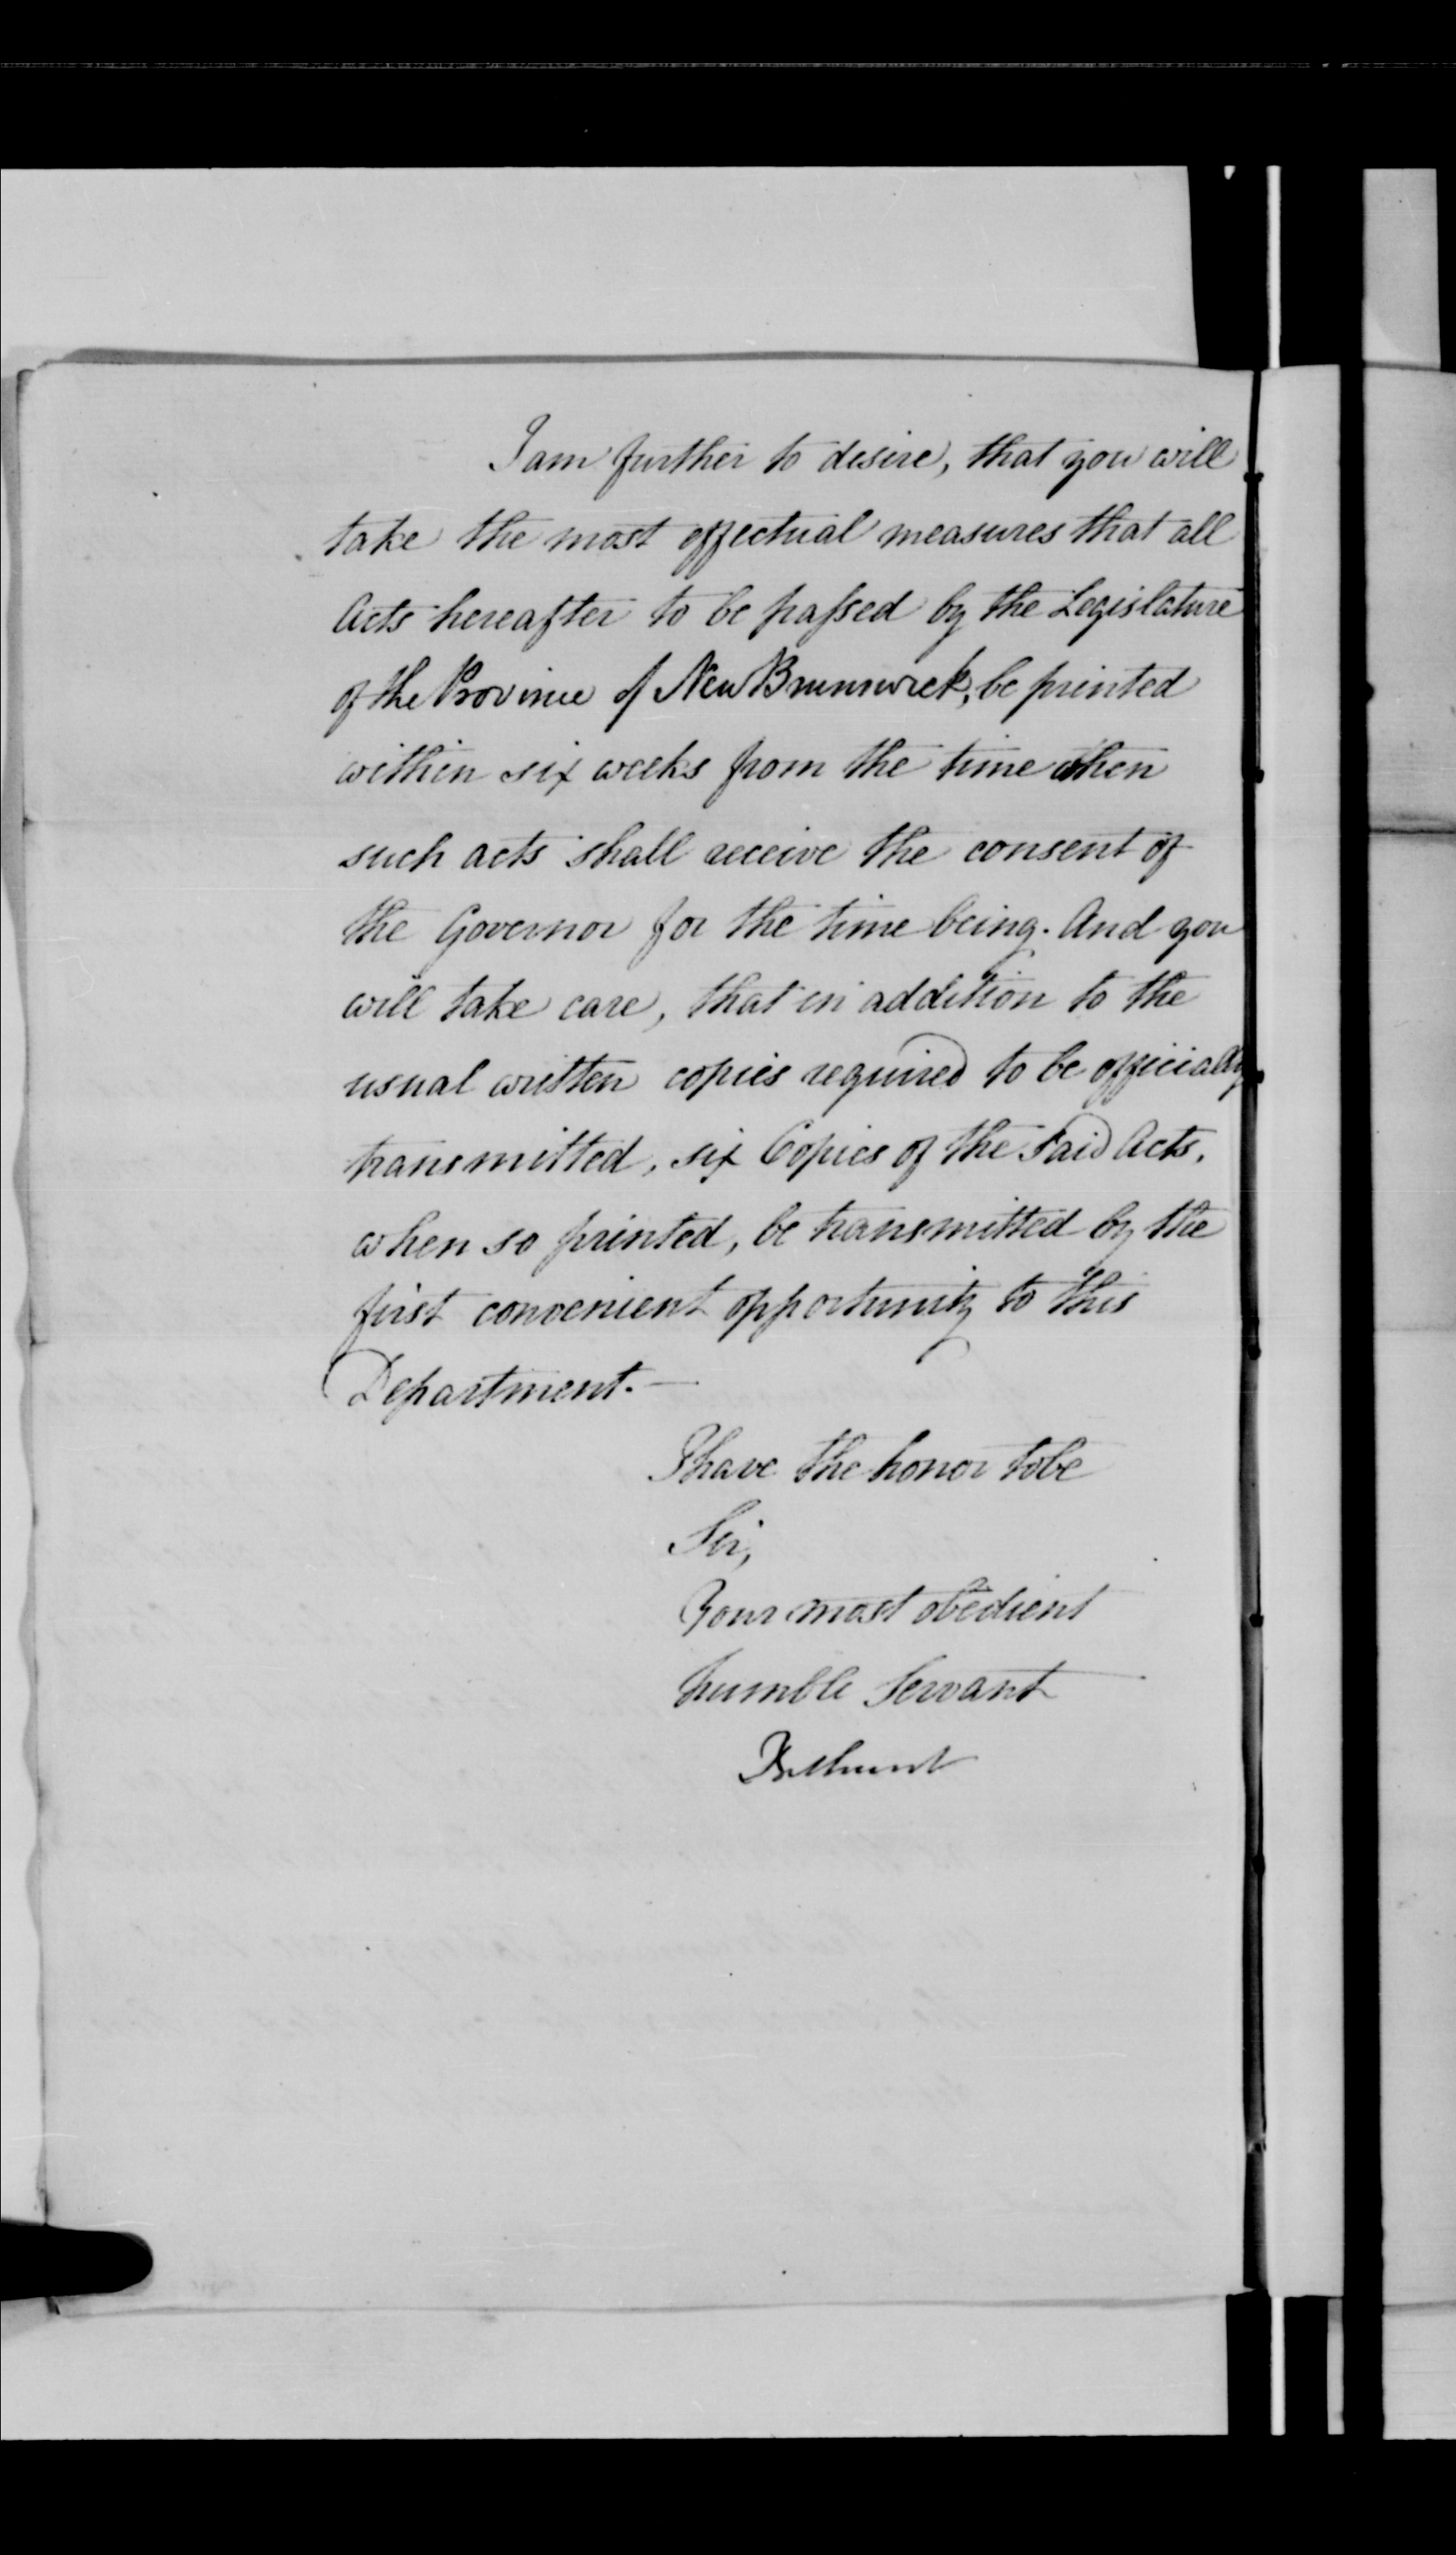 I am further to desire, that you will
take the most effectual measures that all
Acts hereafter to be paſsed by the Legislature
of the Province of New Brunswick, be printed
within six weeks from the time when
such acts shall receive the consent of
the Governor for the time being. And you
will take care, that in addition to the
usual written copies required to be officially
transmitted, six Copies of the said Acts,
when so printed, be transmitted by the
first convenient opportunity to this
Department. —
I have the honor to be
Sir,
Your most obedient
humble Servant
Bathurst